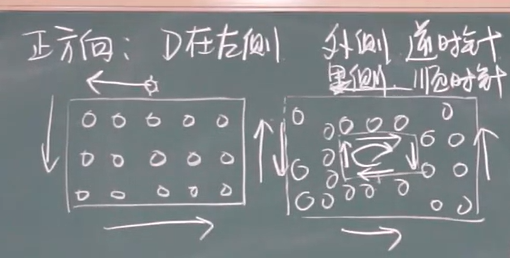 正方向：D在左侧
外侧 逆时针
里侧 顺时针